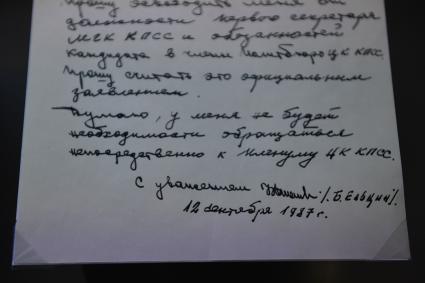 Прошу освободить меня от
должности первого секретаря
МГК КПСС и обязанностей
кандидата в члены Политбюро ЦК КПСС.
Прошу считать это официальным
заявлением.
Думаю, у меня не будет
необходимости обращаться
непосредственно к Пленуму ЦК КПСС.
С уважением /Б. Ельцин/.
12 сентября 1987 г.